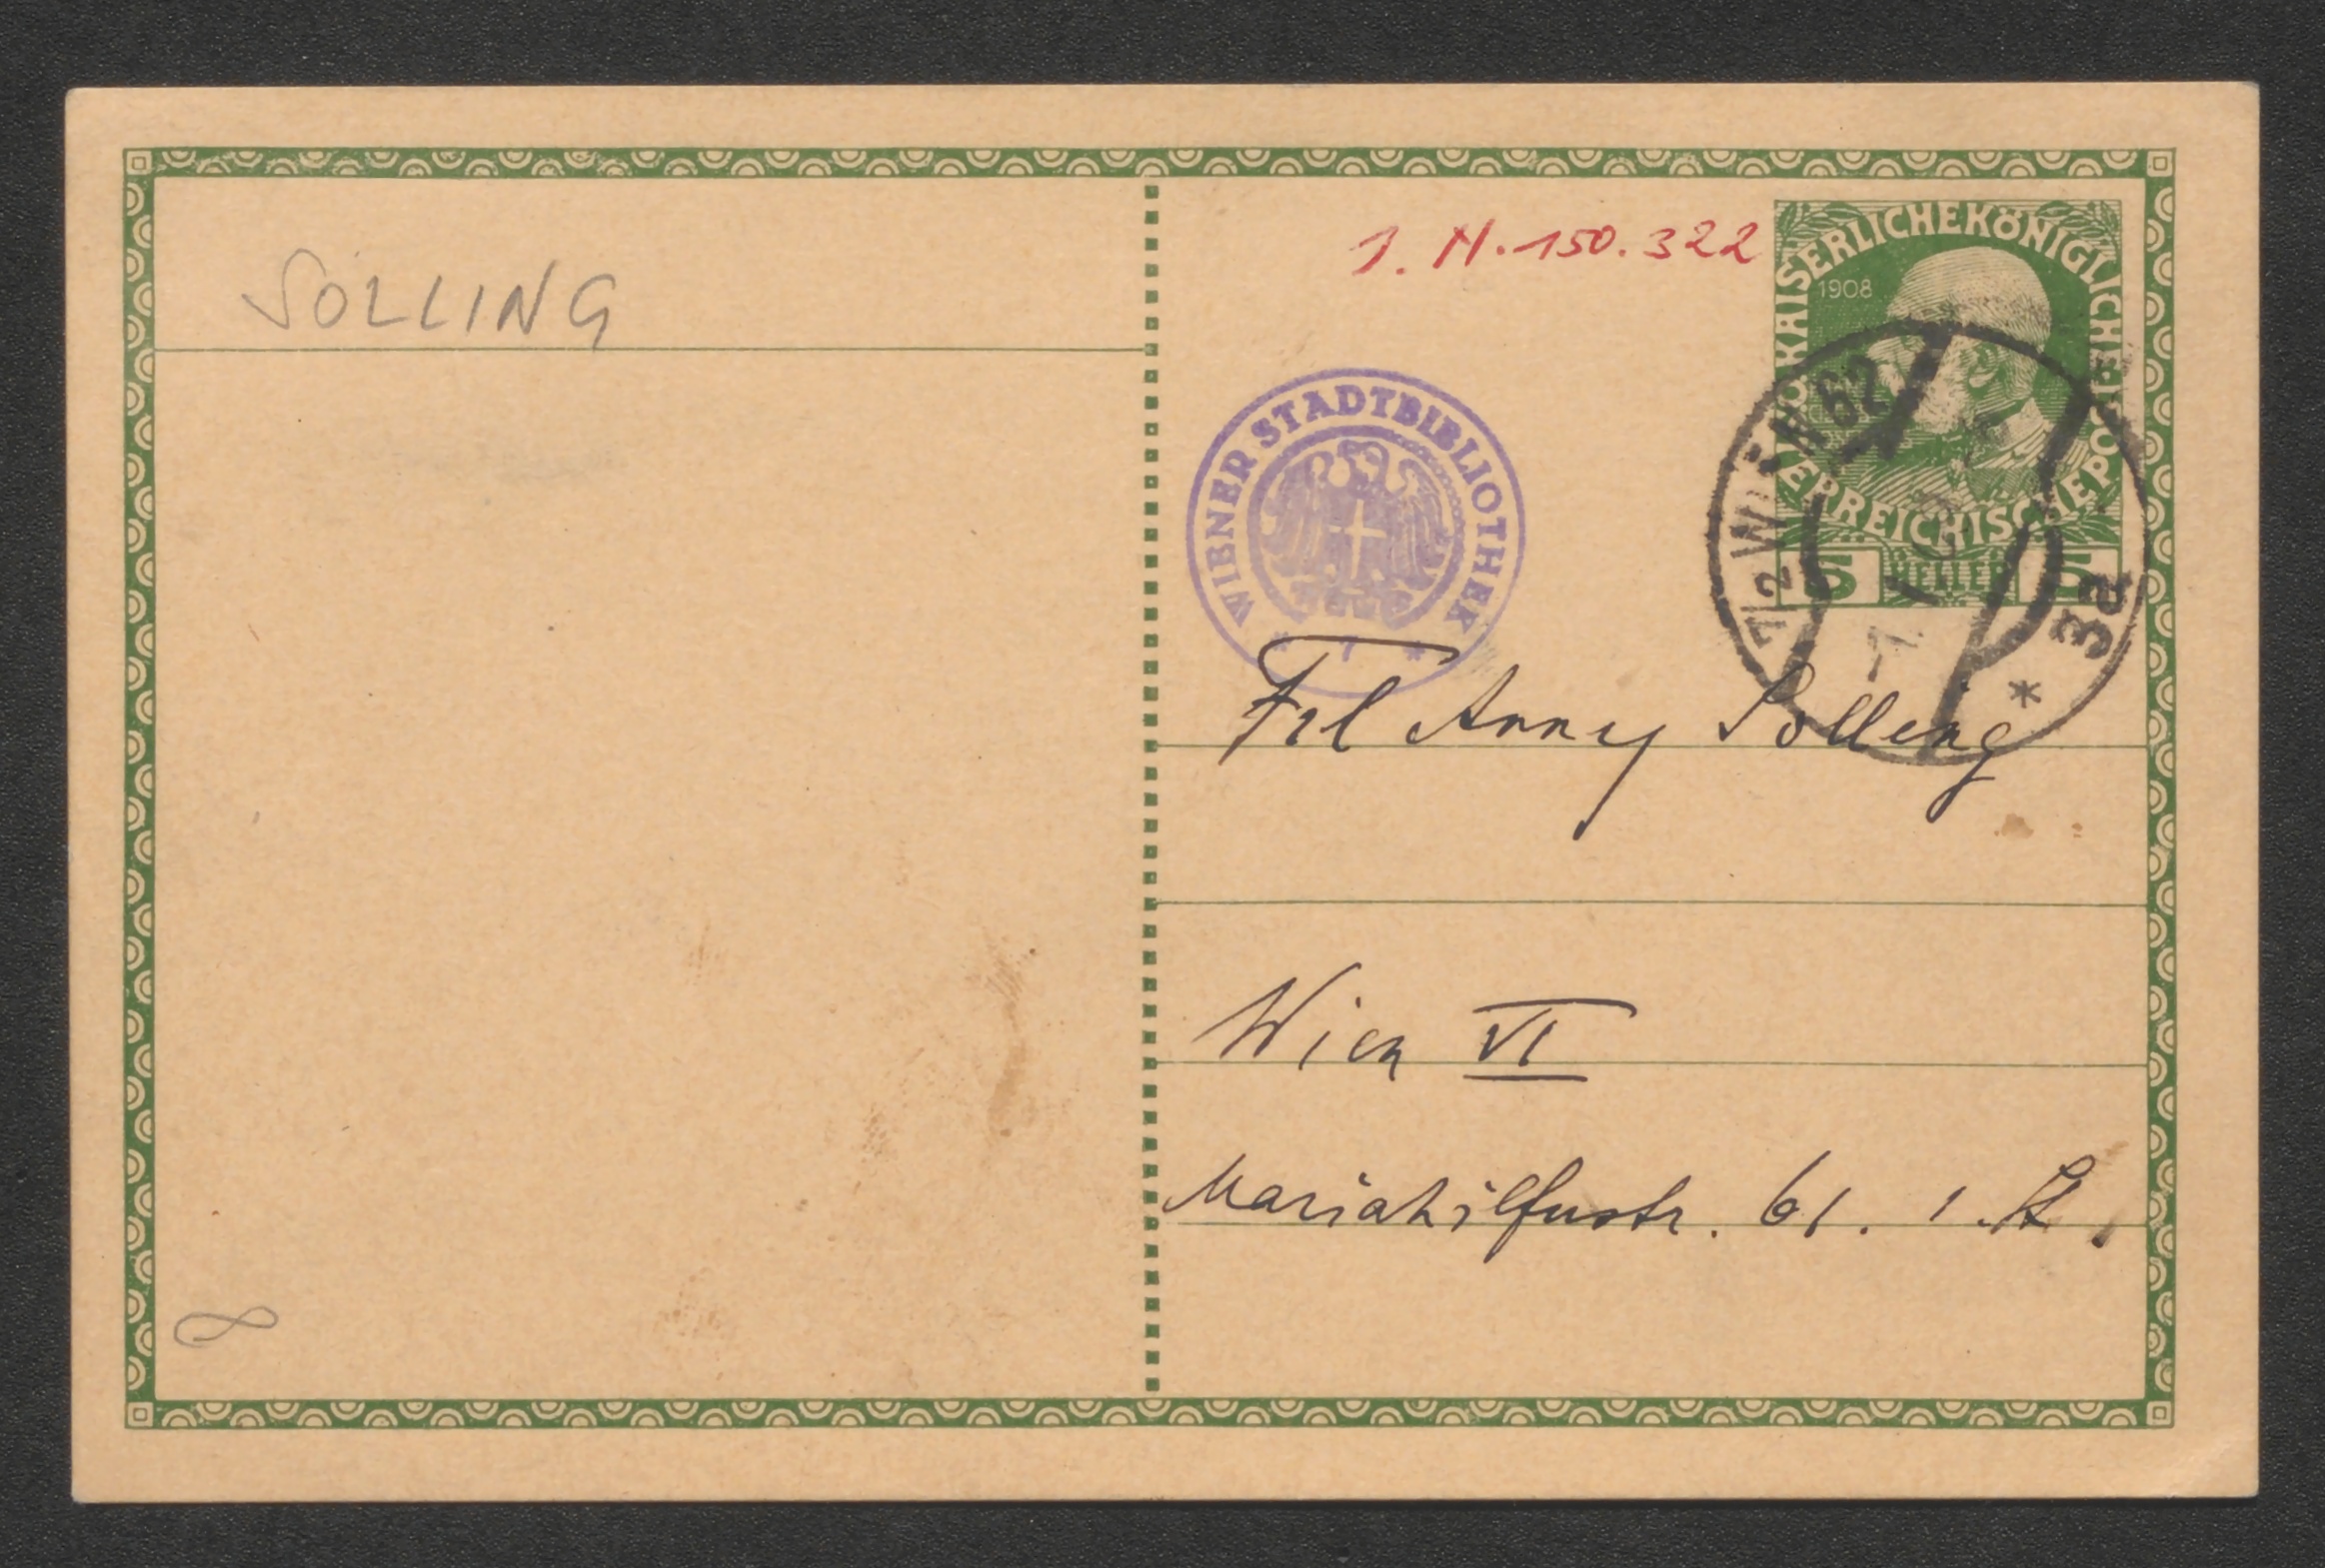 SOLLING
I. N. 150.322
KAISERLICHE KÖNIGLICHE
1908
ÖSTERREICHISCHE POST
5 HELLER 5
1/2 WIEN 62
3a
*
WIENER STADTBIBLIOTHEK
* 7 *
Frl Anny Solling
Wien VI
Mariahilferstr. 61. 1. St.